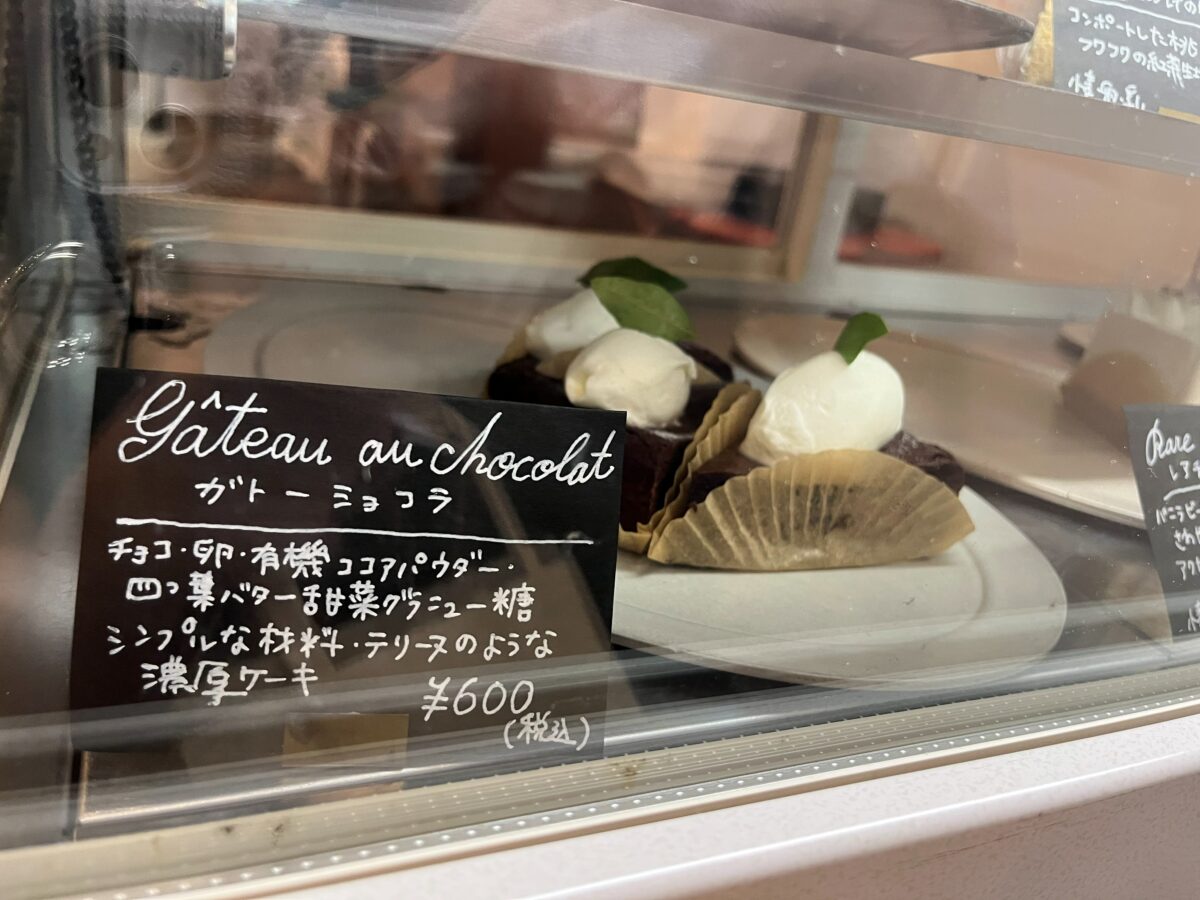 Gâteau au chocolat
ガトーショコラ
チョコ・卵・有機ココアパウダー・
四つ葉バター甜菜グラニュー糖
シンプルな材料・テリーヌのような
濃厚ケーキ
¥600
(税込)
コンポートした桃
フワフワの紅茶生
Rare
レア
バニラビ
さわ